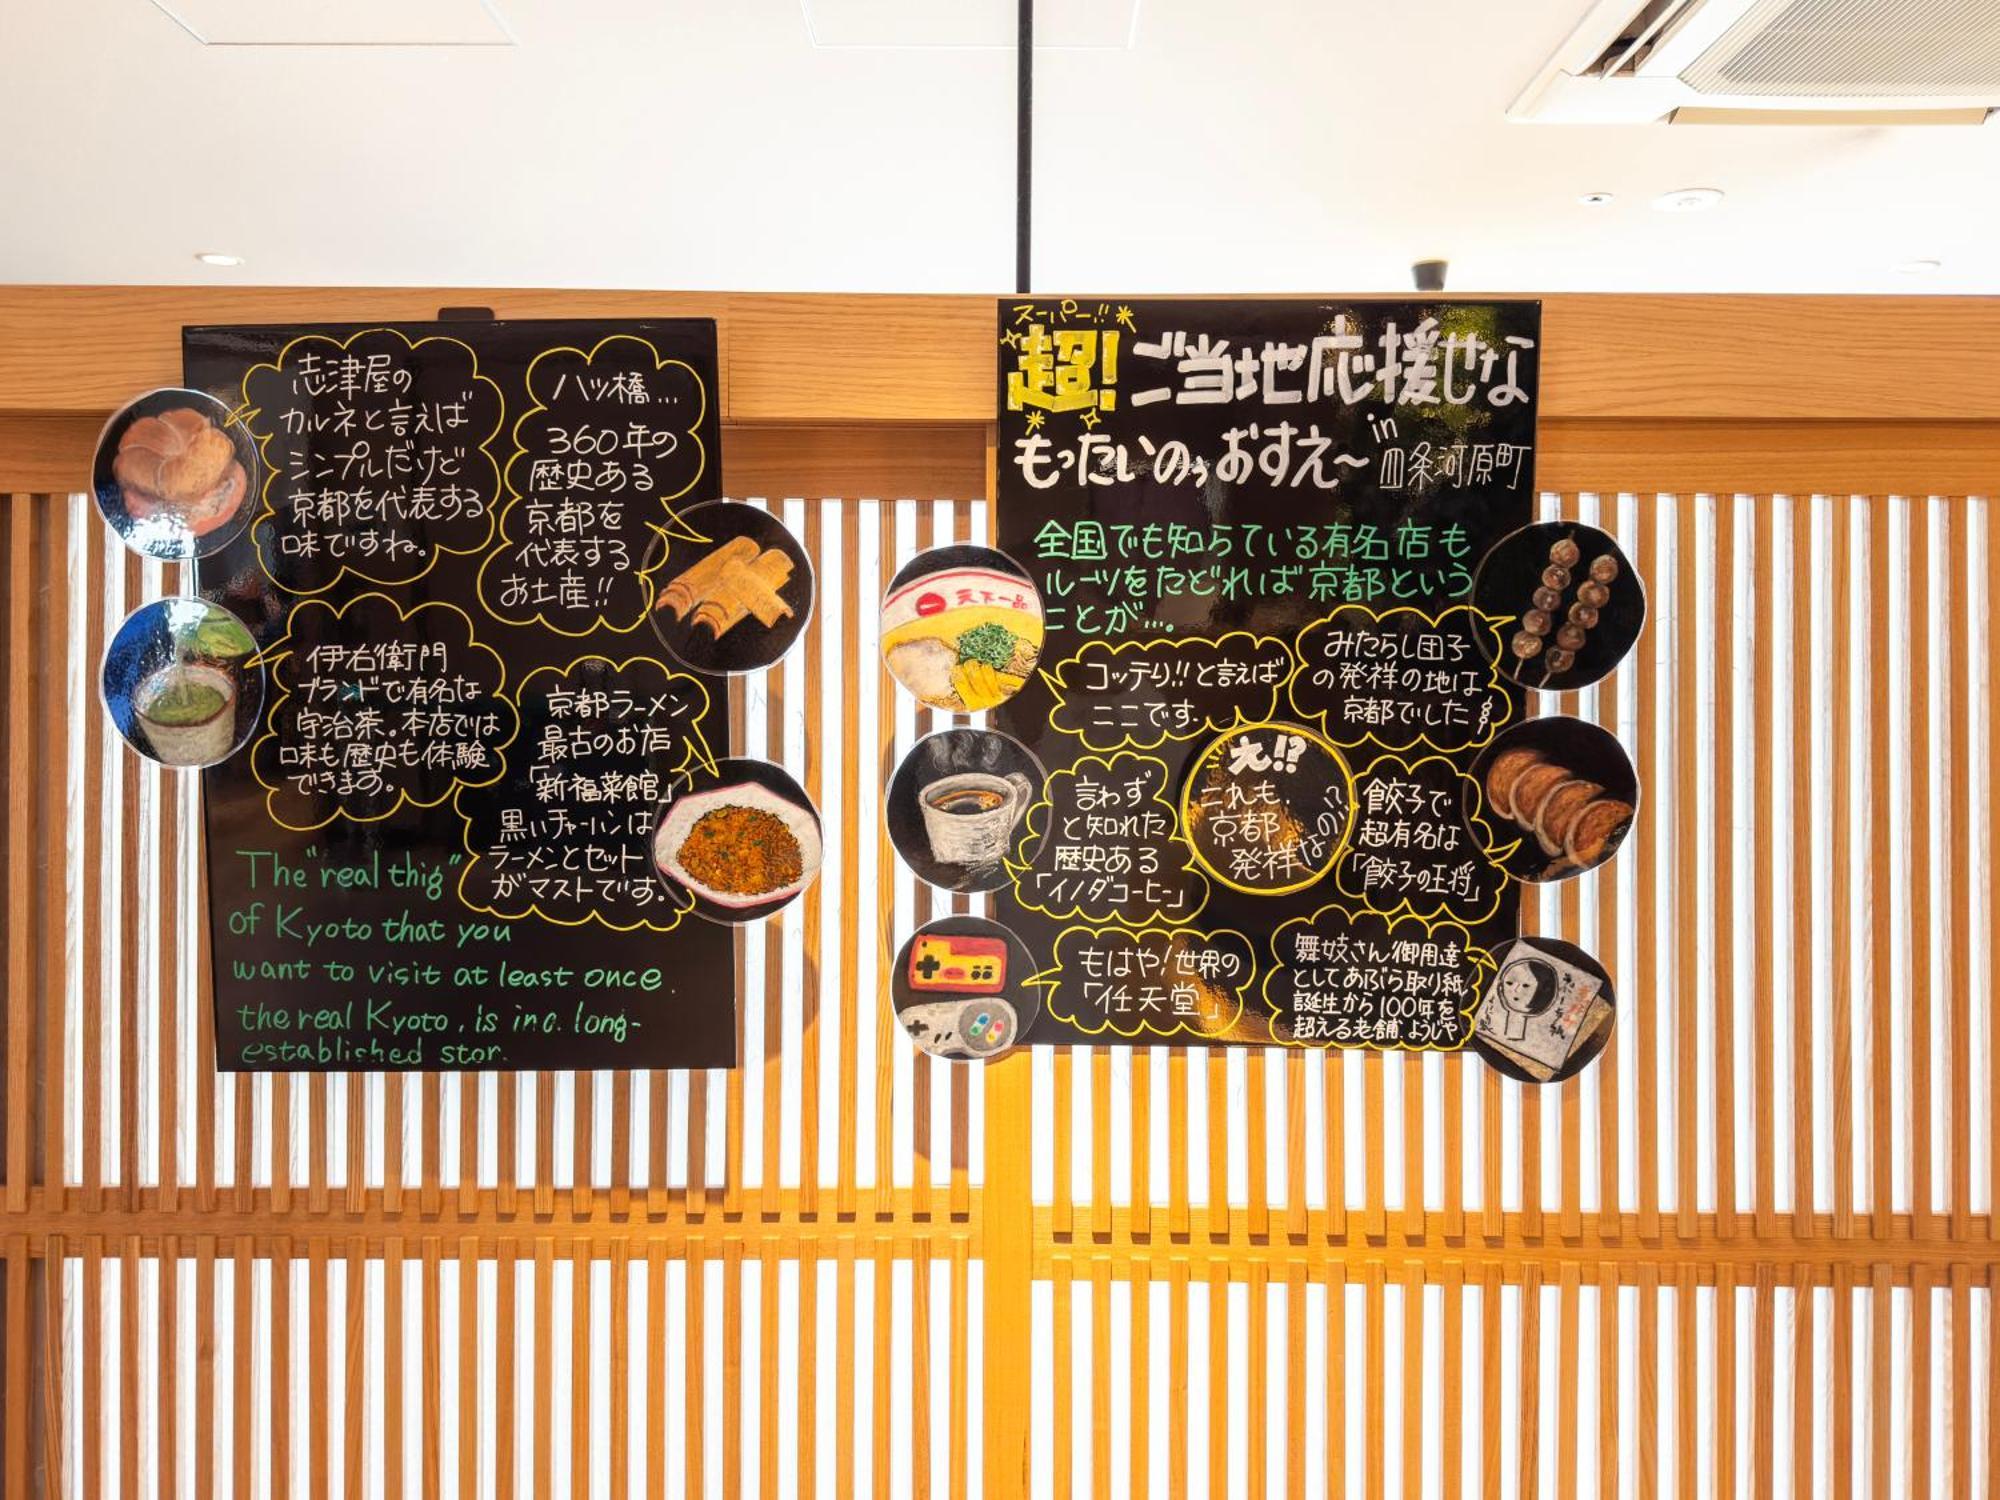 志津屋の
カルネと言えば
シンプルだけど
京都を代表する
味ですね。
八ッ橋...
360年の
歴史ある
京都を
代表する
お土産!!
伊右衛門
ブランドで有名な
宇治茶。本店では
味も歴史も体験
できます。
京都ラーメン
最古のお店
「新福菜館」
黒いチャーハンは
ラーメンとセット
がマストです。
The "real thig"
of Kyoto that you
want to visit at least once.
the real Kyoto, is in a long-
established stor.
スーパー!!
超! ご当地応援せな
もったいのぅおすえ〜 in 四条河原町
全国でも知られている有名店も
ルーツをたどれば京都という
ことが...。
天下一品
コッテリ!!と言えば
ここです。
みたらし団子
の発祥の地は
京都でした
え!?
これも、
京都
発祥なの!?
言わず
と知れた
歴史ある
「イノダコーヒ」
餃子で
超有名な
「餃子の王将」
もはや!世界の
「任天堂」
舞妓さん御用達
としてあぶら取り紙
誕生から100年を
超える老舗、ようじや